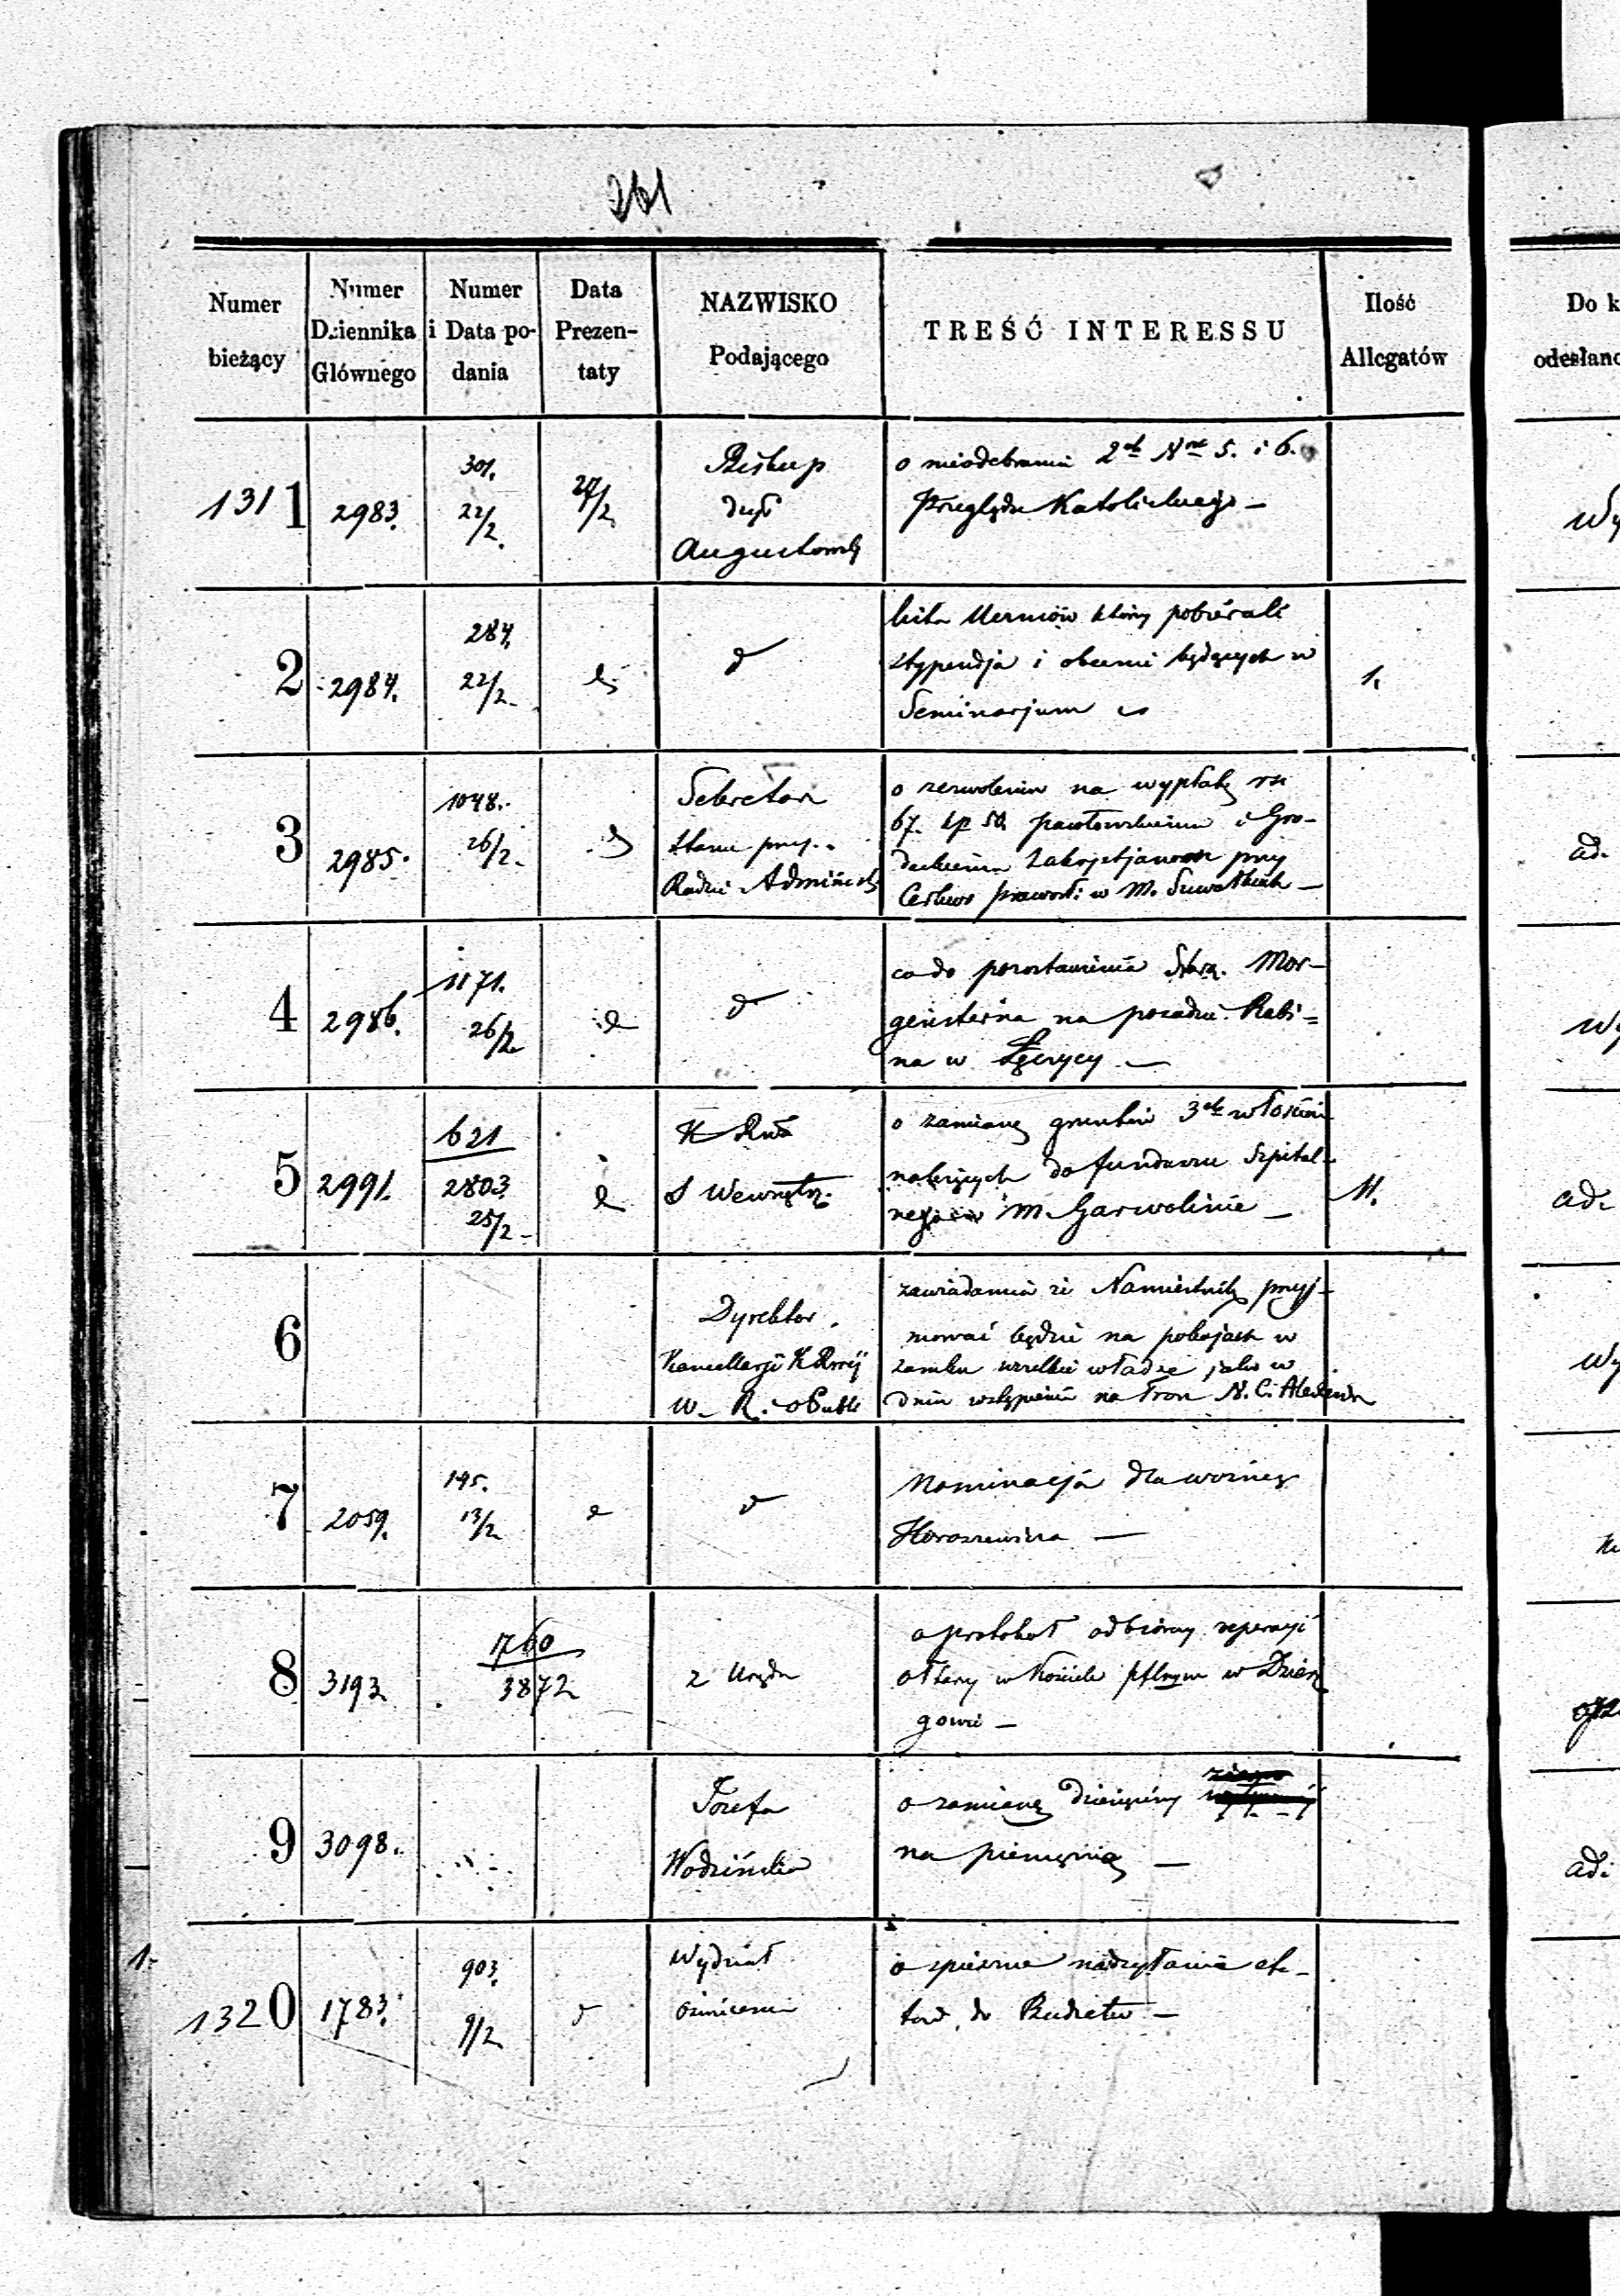 261
Numer bieżący
Numer Dziennika Głównego
Numer i Data podania
Data Prezentaty
NAZWISKO Podającego
TREŚĆ INTERESSU
Ilość Allegatów
Do k
odesłano
1311 2983. 301. 22/2. 27/2
Biskup
dyec
Augustowsk
o nieodebraniu 2ch Nrów 5. i 6.
Przeglądu Katolickiego —
Wy
2 2984. 284. 22/2. d
lista Uczniów którzy pobierali
stypendja i obecnie będących w
Seminarjum
1.
3 2985. 1048. 26/2.
Sekretarz
Stanu przy
Radzie Administ
o zezwolenie na wypłatę rs
67. kp 50 Pawłowskiemu i Gro-
deckiemu Zakrystjanom przy
Cerkwi prawosł: w M. Suwałkach —
ad.
4 2986. 1171. 26/2. d
co do pozostawienia Mor-
gensterna na posadzie Rabi=
na w Łęczycy —
Wy
5 2991. 621 2803 25/2.
K R
S Wewnętrz.
o zamianę gruntów 3ch włościan
należących do funduszu Szpital-
nego w M. Garwolinie —
11.
ad.
6
Dyrektor
Kancellarji K Rzeij
W. R. i O Publ
zawiadamia że Namiestnik przyj-
mować będzie na pokojach w
Zamku wszelkie władze jako w
dniu wstąpienia na tron N. C. Alexandr
Wy
7 2059. 195. 13/2 d
Nominacja dla woźnego
Horoszewicza —
8 3193 1760 3872
z Urzędu
o protokół odbiorczy reperacyi
ołtarzy w Kościele pflnym w Dzierz
gowie —
9 3098.
Józefa
Wodzińska
o zamianę dziesięciny
na pieniężną —
ad.
1.
1320 1783. 903. 9/2 d
Wydział
Oświecenia
o spieszne nadesłanie etc
tow. do Budżetu —